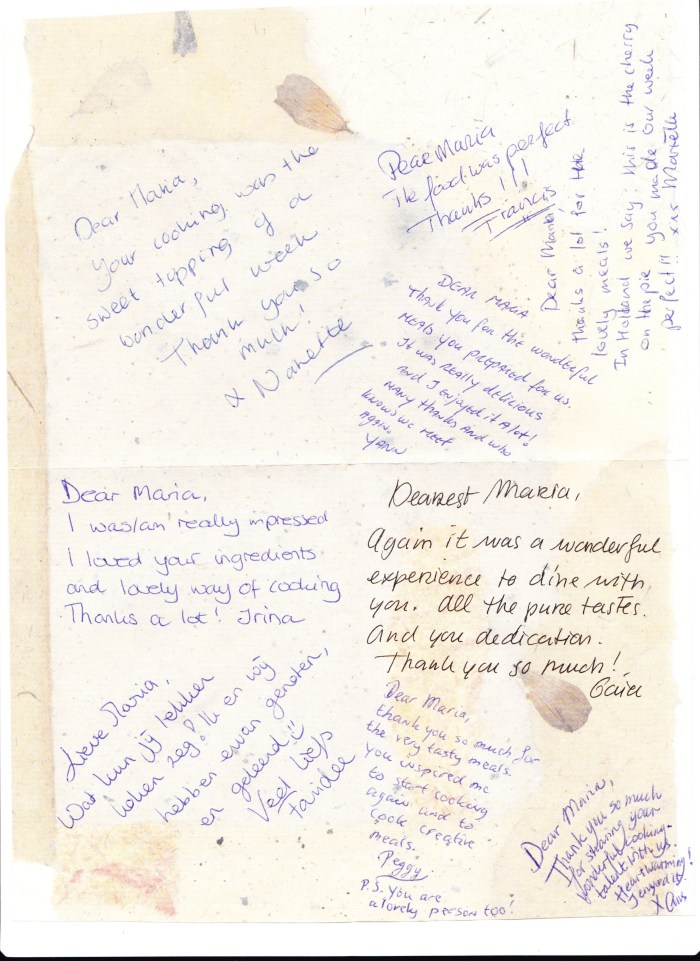 Dear Maria,
your cooking was the
sweet topping of a
wonderfull week
Thank you so
much!
x Nanette
Dear Maria
The food was perfect
Thanks!!!
Francis
Dear Maria,
thanks a lot for the
lovely meals!
In Holland we say: this is the cherry
on the pie you made our week
perfect!! xxx Mariëlle
DEAR MARIA
Thank you for the wonderful
meals you prepared for us.
It was really delicious
and I enjoyed it a lot!
Many thanks and who
knows we meet
again.
YANN
Dear Maria,
I was/am really impressed
I loved your ingredients
and lovely way of cooking
Thanks a lot! Irina
Dearest Maria,
Again it was a wonderful
experience to dine with
you. All the pure tastes.
And you dedication.
Thank you so much!
Gaia
Lieve Maria,
Wat kun jij lekker
koken zeg! Ik en wij
hebben ervan genoten,
en geleerd
Veel liefs
Dear Maria,
thank you so much for
the very tasty meals.
You inspired me
to start cooking
again and to
cook creative
meals.
Peggy
P.S. You are
a lovely person too!
Dear Maria,
Thank you so much
for sharing your
wonderful cooking-
talent with us.
Heartwarming!
I enjoyed it.
X Ans